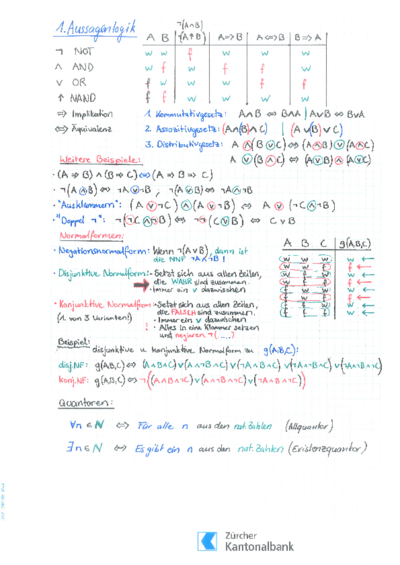 1. Aussagenlogik
A B ¬(A∧B) (A↑B) A⇒B A⇔B B⇒A
¬ NOT w w f w w w
∧ AND w f w f f w
∨ OR f w w w f
↑ NAND f f w w w w
⇒ Implikation 1. Kommutativgesetz: A∧B ⇔ B∧A | A∨B ⇔ B∨A
⇔ Äquivalenz 2. Assoziativgesetz: (A∧(B)∧C) | (A∨(B)∨C)
3. Distributivgesetz: A∧(B∨C) ⇔ (A∧B)∨(A∧C)
A∨(B∧C) ⇔ (A∨B)∧(A∨C)
Weitere Beispiele:
· (A ⇒ B) ∧ (B ⇒ C) ⇔ (A ⇒ B ⇒ C)
· ¬(A∧B) ⇔ ¬A∨¬B, ¬(A∨B) ⇔ ¬A∧¬B
· "Ausklammern": (A∨¬C)∧(A∨¬B) ⇔ A∨(¬C∧¬B)
· "Doppel ¬": ¬(¬C∧¬B) ⇔ ¬¬(C∨B) ⇔ C∨B
Normalformen:
· Negationsnormalform: Wenn ¬(A∨B), dann ist
die NNF ¬A∧¬B!
A B C g(A,B,C)
· Disjunktive Normalform: - Setzt sich aus allen Zeilen,
die WAHR sind zusammen.
- Immer ein ∨ dazwischen
· Konjunktive Normalform - Setzt sich aus allen Zeilen,
(1 von 3 Varianten!) die FALSCH sind zusammen.
- Immer ein ∨ dazwischen
! - Alles in eine Klammer setzen
und negieren ¬(.....)
Beispiel:
disjunktive u. konjunktive Normalform zu g(A,B,C):
disj.NF: g(A,B,C) ⇔ (A∧B∧C)∨(A∧¬B∧C)∨(¬A∧B∧C)∨(¬A∧¬B∧C)∨(¬A∧¬B∧¬C)
Konj.NF: g(A,B,C) ⇔ ¬((A∧B∧¬C)∨(A∧¬B∧¬C)∨(¬A∧B∧¬C))
Quantoren:
∀n∈N ⇔ Für alle n aus den nat. Zahlen (Allquantor)
∃n∈N ⇔ Es gibt ein n aus den nat. Zahlen (Existenzquantor)
Zürcher
Kantonalbank